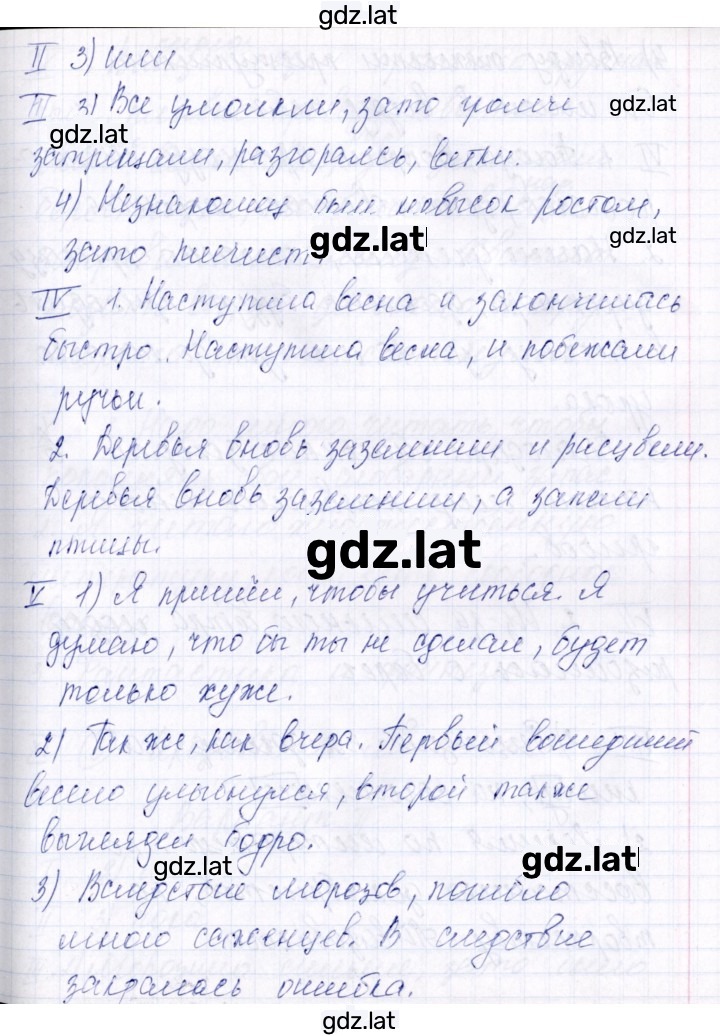 gdz.lat
II 3) или
III 2) Все умолкли, зато громче gdz.lat
gdz.lat
затрещали, разгораясь, ветки.
4) Незнакомец был невысок ростом,
зато плечист. gdz.lat gdz.lat
IV 1. Наступила весна и закончилась
быстро. Наступила весна, и побежали
ручьи.
2. Деревья вновь зазеленели и расцвели.
Деревья вновь зазеленели, а запели
птицы.
gdz.lat
V 1) Я пришёл, чтобы учиться. Я
думаю, что бы ты не сделал, будет
только хуже.
2) Так же, как вчера. Первый вошедший
весело улыбнулся, второй также
выглядел бодро.
gdz.lat gdz.lat
3) Вследствие морозов, погибло
много саженцев. В следствие
закралась ошибка.
gdz.lat